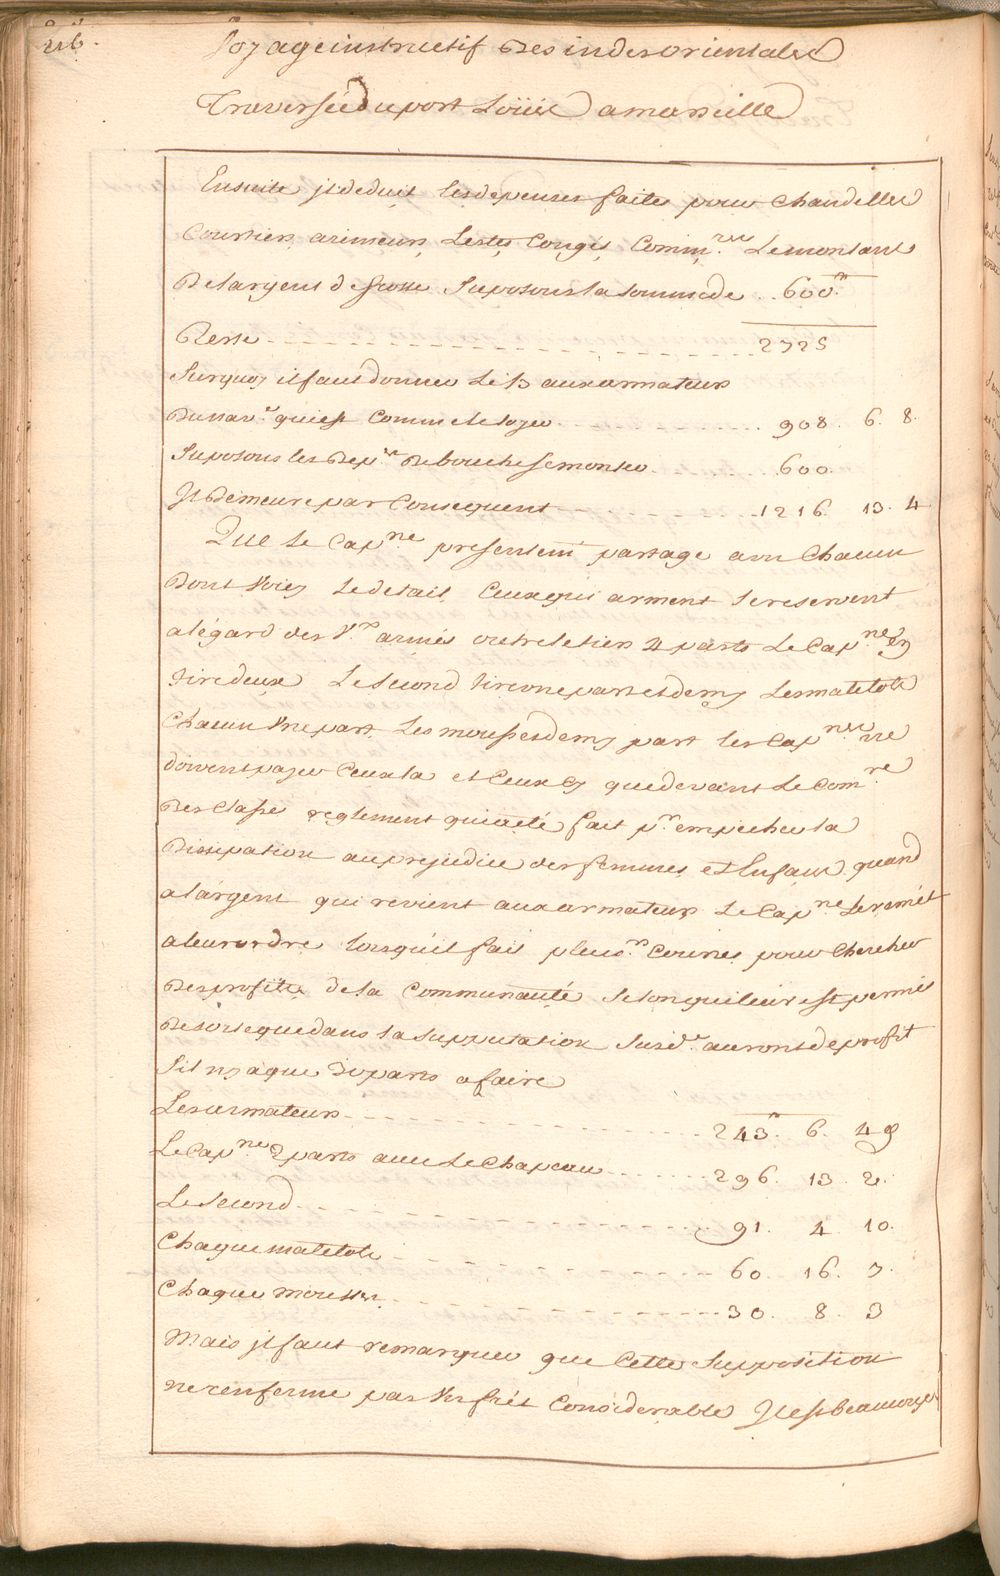 216.
Voyage instructif Des indes orientales
Traversée du port Loüis a marseille
Ensuite jl deduit les depenses faites pour Chandelles
Courtiers arimeurs, Lestes Congés Comm.res Le montant
De largent de grosse Suposons la somme de .. 600.tt
Reste ... 2725
Surquoy il faut donner le 1/3 aux armateurs
Du nav.e qui est Comme le loyer ... 908. 6. 8.
Suposons les Dep.ses De bouche se monter ... 600.
Jl Demeure par Consequent ... 1216. 13. 4
Que Le Cap.ne present en partage a un Chacun
Dont Voicy Le detail Ceux qui arment se reservent
a légard des V.x armés outre le tiers 4 parts Le Cap.ne en
tire deux Le second tire one part et demy Les matelots
Chacun Vne part Les mousses demy part les Cap.nes ne
doivent payer Ceux la et Ceux Cy que devant Le Com.re
Des Classe reglement qui a eté fait p.r empecher la
Dissipation au prejudice des femmes et Enfans quand
a largent qui revient aux armateurs Le Cap.ne Le remet
a leur ordre lors qu'il fait plus.rs Courses pour Chercher
Des profits de la Communauté selon qu il leur est permis
De sorte que dans la supputation susd.e auront de profit
Sil ny a que 20 parts a faire
Les armateurs ... 243.tt 6. 4 9
Le Cap.ne 2 parts avec Le Chapeau ... 296. 13. 2.
Le second ... 91. 4 10.
Chaque matelots ... 60. 16. 7.
Chaque mousses ... 30. 8. 3
Mais jl faut remarquer que Cette supposition
ne renferme pas Vn frêt Considerable Jl est beaucoup